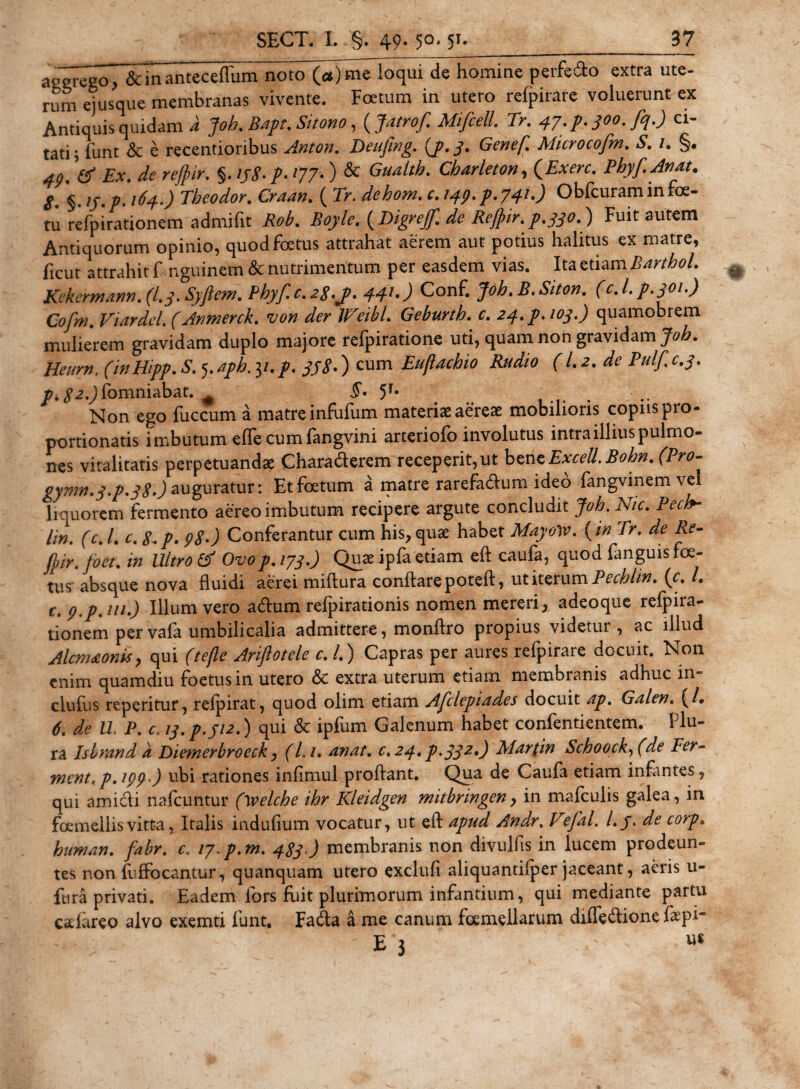 SECT. I. §. 49. 50. 51. 37
aggrego, & in antecessum noto (α) me loqui de homine perfecto extra ute-
rum ejusque membranas vivente. Fœtum in utero reſpirare voluerunt ex
Antiquis quidam à Joh. Bapt. Sitono, (Jatroſ. Miſcell. Tr. 47. p. 300. ſq.) ci-
tati; ſunt & è recentioribus Anton. Deuſing. (p. 3. Geneſ. Microcoſm. S. 1. §.
49. & Ex. de reſpir. §. 15 8. p. 177.) & Gualth. Charleton, (Exerc. Phyſ. Anat.
8. §. 15. p. 164.) Theodor. Craan. (Tr. de hom. c. 149. p. 741.) Obſcuram in fœ-
tu reſpirationem admiſit Rob. Boyle. (Digreſſ. de Reſpir. p. 330.) Fuit autem
Antiquorum opinio, quod fœtus attrahat aërem aut potius halitus ex matre,
ſicut attrahit ſ nguinem & nutrimentum per easdem vias. Ita etiam Barthol.
Kekermann. (l. 3. Syſtem. Phyſ. c. 28. p. 441.) Conf. Joh. B. Siton. (c. l. p. 301.)
Coſm. Viardel. (Anmerck. von der Weibl. Geburth. c. 24. p. 103.) quamobrem
mulierem gravidam duplo majore reſpiratione uti, quam non gravidam Joh.
Heurn. (in Hipp. S. 5. aph. 31. p. 358.) cum Euſtachio Rudio (l. 2. de Pulſ. c. 3.
p. 82.) ſomniabat.
§. 51.
Non ego ſuccum à matre infuſum materiæ aëreæ mobilioris copiis pro-
portionatis imbutum eſſe cum ſangvini arterioſo involutus intra illius pulmo-
nes vitalitatis perpetuandæ Characterem receperit, ut bene Excell. Bohn. (Pro-
gymn. 3. p. 38.) auguratur: Et fœtum à matre rarefactum ideò ſangvinem vel
liquorem fermento aëreo imbutum recipere argute concludit Joh. Nic. Pech-
lin. (c. l. c. 8. p. 98.) Conferantur cum his, quæ habet Mayow. (in Tr. de Re-
ſpir. foet. in Utro & Ovo p. 173.) Quæ ipſa etiam eſt cauſa, quod ſanguis fœ-
tus absque nova fluidi aërei miſtura conſtare poteſt, ut iterum Pechlin. (c. l.
c. 9. p. 111.) Illum vero actum reſpirationis nomen mereri, adeoque reſpira-
tionem per vaſa umbilicalia admittere, monſtro propius videtur, ac illud
Alcmæonis, qui (teſte Ariſtotele c. l.) Capras per aures reſpirare docuit. Non
enim quamdiu foetus in utero & extra uterum etiam membranis adhuc in-
cluſus reperitur, reſpirat, quod olim etiam Aſclepiades docuit ap. Galen. (l.
6. de U. P. c. 13. p. 512.) qui & ipſum Galenum habet conſentientem. Plu-
ra Isbrand à Diemerbroeck, (l. 1. anat. c. 24. p. 332.) Martin Schoock, (de Fer-
ment. p. 199.) ubi rationes inſimul proſtant. Qua de Cauſa etiam infantes,
qui amicti naſcuntur (welche ihr Kleidgen mitbringen, in maſculis galea, in
fœmellis vitta, Italis induſium vocatur, ut eſt apud Andr. Veſal. l. 5. de corp.
human. fabr. c. 17. p. m. 483.) membranis non divulſis in lucem prodeun-
tes non ſuffocantur, quanquam utero excluſi aliquantiſper jaceant, aëris u-
ſurâ privati. Eadem ſors fuit plurimorum infantium, qui mediante partu
cæſareo alvo exemti ſunt. Facta à me canum fœmellarum diſſectione ſæpi-
E 3 us